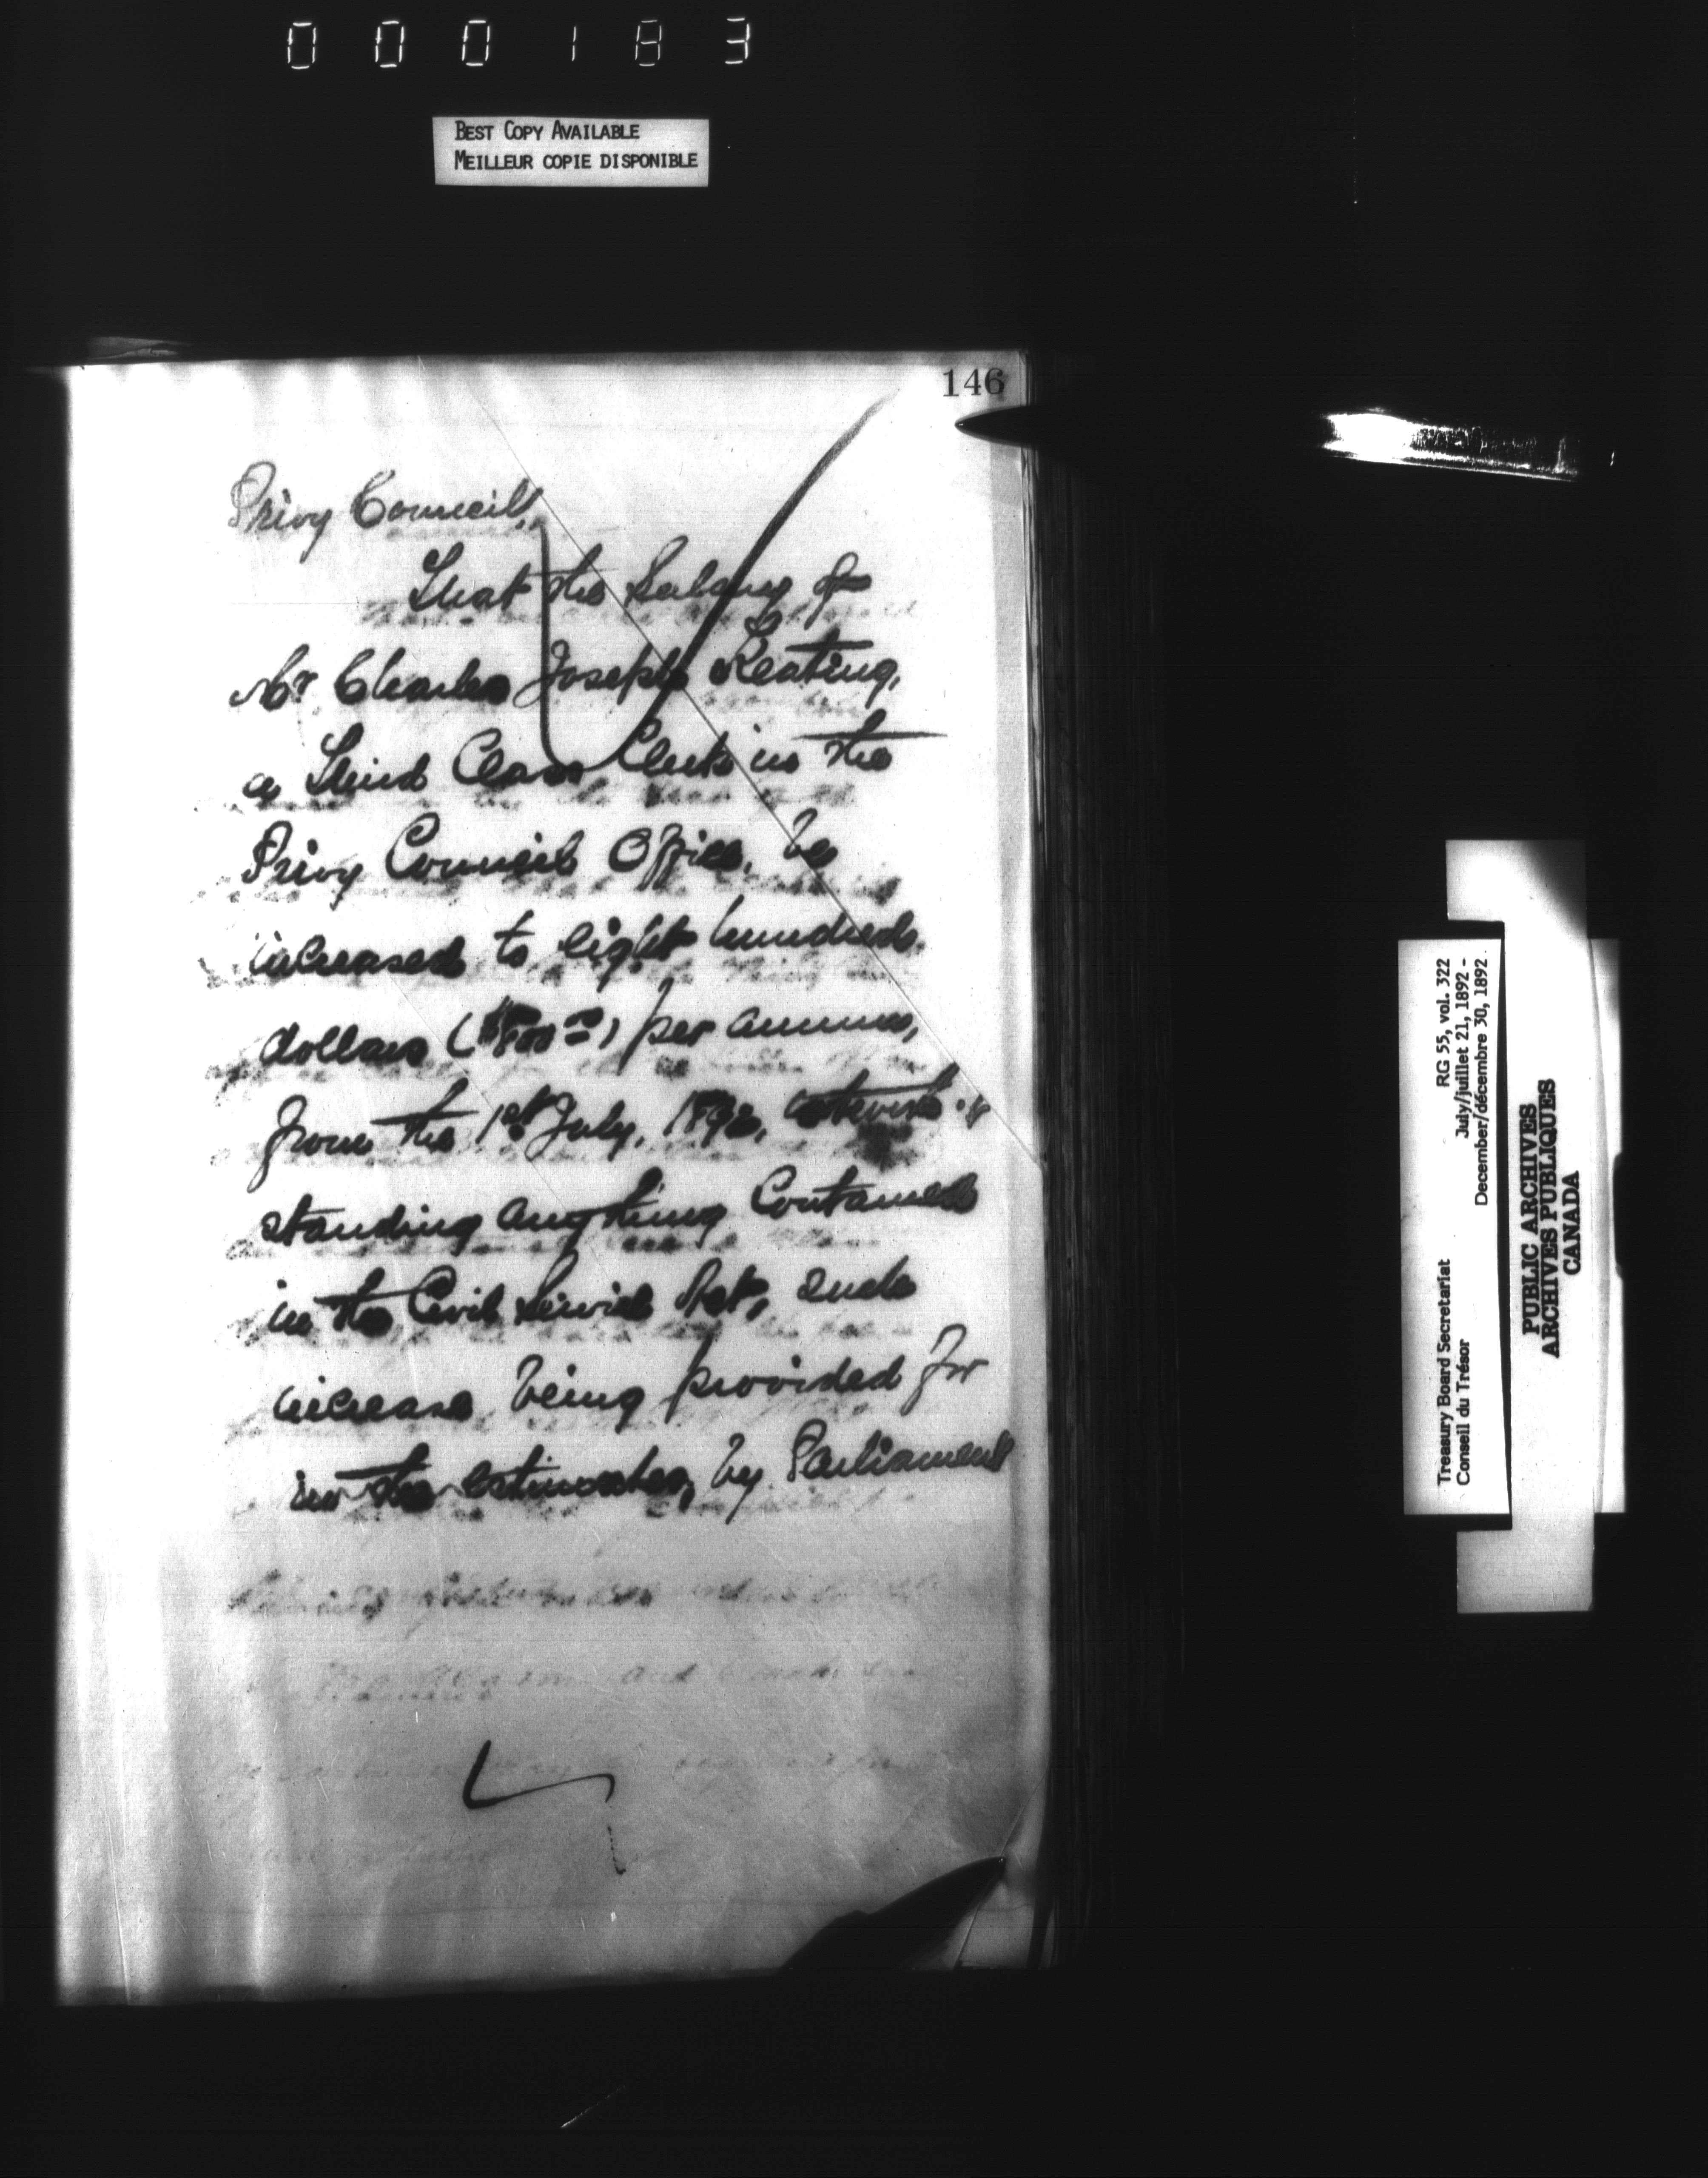 000183
BEST COPY AVAILABLE
MEILLEUR COPIE DISPONIBLE
146
Privy Council,
That the Salary of
Mr Charles Joseph Keating,
a Third Class Clerk in the
Privy Council Office, be
increased to eight hundred
dollars ($800 00) per annum,
from the 1st July, 1892, notwith-
standing anything contained
in the Civil Service Act, such
increase being provided for
in the estimates, by Parliament
Treasury Board Secretariat RG 55, vol. 322
Conseil du Trésor July/juillet 21, 1892 -
December/décembre 30, 1892
PUBLIC ARCHIVES
ARCHIVES PUBLIQUES
CANADA